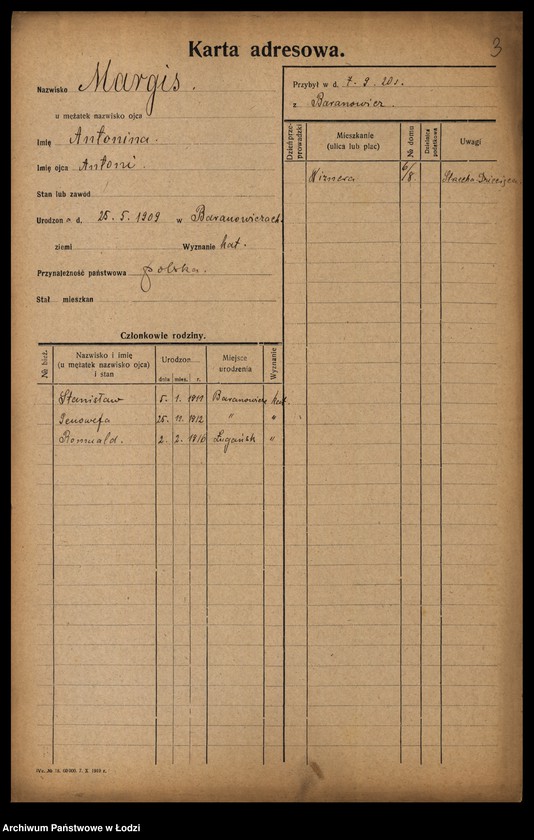 3
Karta adresowa.
Nazwisko Margis.
u mężatek nazwisko ojca
Imię Antonina.
Imię ojca Antoni.
Stan lub zawód
Urodzon a d. 25. 5. 1909 w Baranowiczach.
ziemi Wyznanie kat.
Przynależność państwowa polska.
Stał mieszkan
Członkowie rodziny.
№ bież. Nazwisko i imię (u mężatek nazwisko ojca) i stan Urodzon dnia mies. r. Miejsce urodzenia Wyznanie
Stanisław 5. 1. 1911 Baranowicze kat.
Genowefa 25. 11. 1912 " "
Romuald. 2. 2. 1916 Ługańsk "
Przybył w d. 7. 9. 20 r.
z Baranowicz.
Dzień przeprowadzki Mieszkanie (ulica lub plac) № domu Dzielnica podatkowa Uwagi
Wiznera 6/8.
Archiwum Państwowe w Łodzi